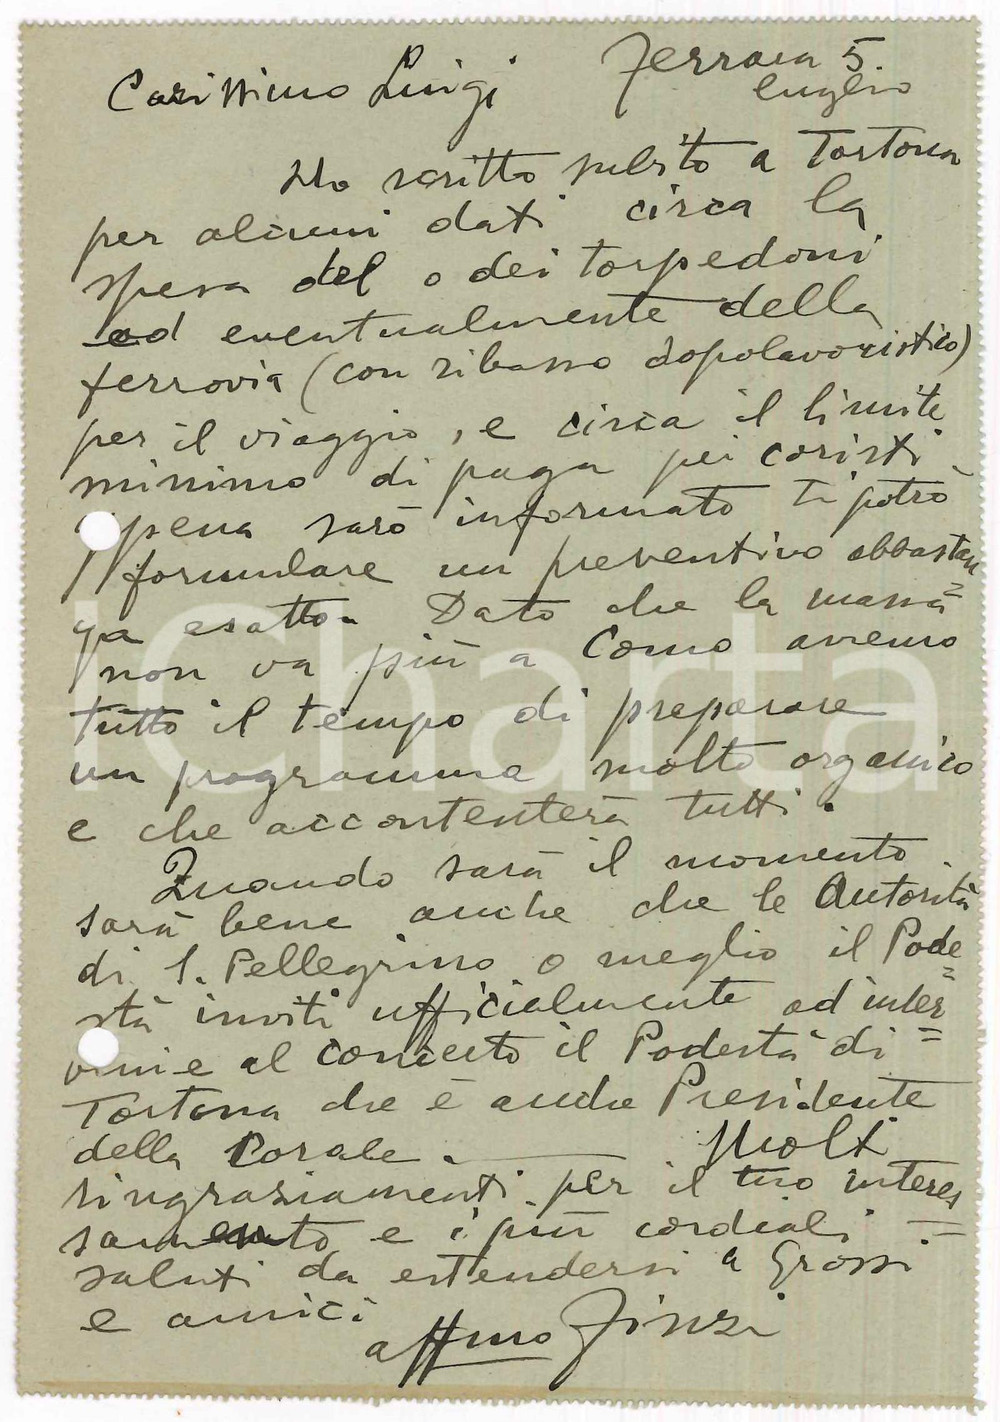 Ferrara 5.
luglio
Carissimo Luigi
Ho scritto subito a Tortona
per alcuni dati circa la
spesa del o dei torpedoni
ed eventualmente della
ferrovia (con ribasso dopolavoristico)
per il viaggio, e circa il limite
minimo di paga pei coristi.
Appena sarò informato ti potrò
formulare un preventivo abbastan=
za esatto. Dato che la massa
non va più a Como avremo
tutto il tempo di preparare
un programma molto organico
e che accontenterà tutti.
Quando sarà il momento
sarà bene anche che le Autorità
di S. Pellegrino o meglio il Pode=
stà inviti ufficialmente ad inter=
venire al concerto il Podestà di
Tortona che è anche Presidente
della Corale. — Molti
ringraziamenti per il tuo interes=
samento e i più cordiali
saluti da estendersi a Grossi
e amici
affmo Finzi
iCharta